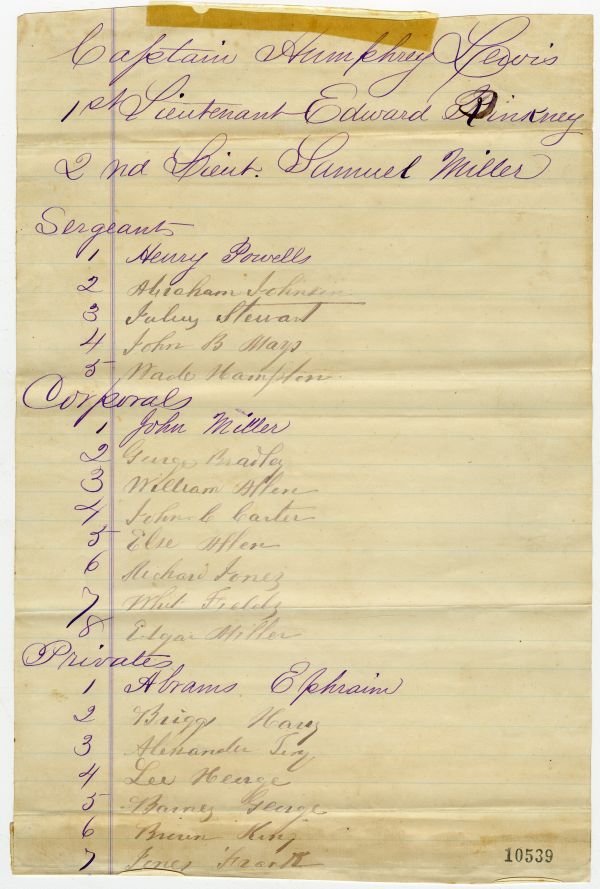 Captain Humphrey Lewis
1st Lieutenant Edward Pinkney
2nd Lieut. Samuel Miller
Sergeants
1 Henry Powells
2 Abraham Johnson
3 Julius Stewart
4 John B Mays
5 Wade Hampton
Corporals
1 John Miller
2 George Bradley
3 William Allen
4 John C Carter
5 Allen
6 Richard Jones
7 Whit Fields
8 Edgar Miller
Privates
1 Abrams Ephraim
2 Briggs Harry
3 Alexander
4 Lee
5 Barnes George
6 Brown King
7 Jones Frank
10539